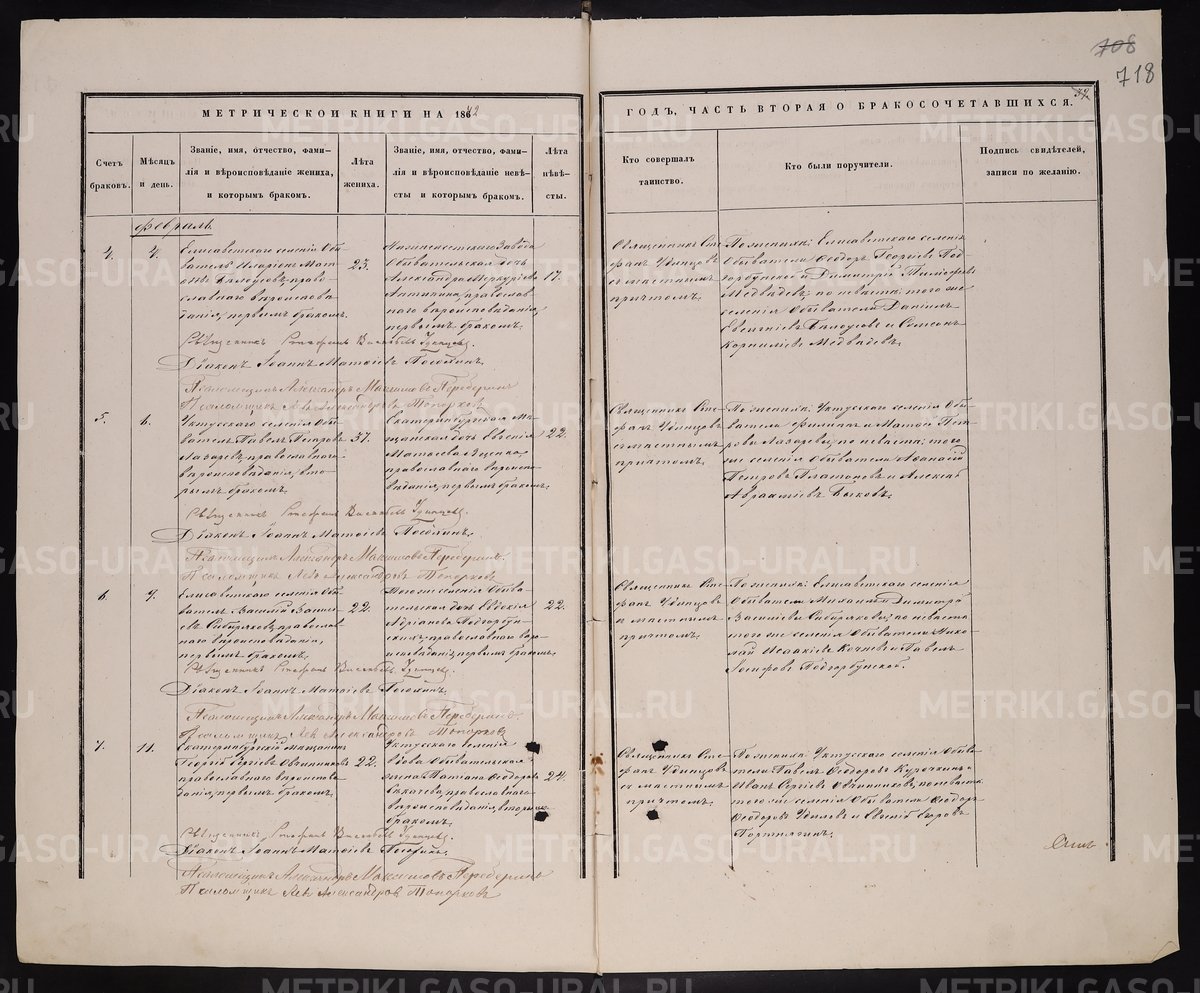 708
718
МЕТРИЧЕСКОЙ КНИГИ НА 1872
ГОДЪ, ЧАСТЬ ВТОРАЯ О БРАКОСОЧЕТАВШИХСЯ.
Счетъ
браковъ.
Мѣсяцъ
и день.
Званіе, имя, отчество, фами-
лія и вѣроисповѣданіе жениха,
и которымъ бракомъ.
Лѣта
жениха.
Званіе, имя, отчество, фами-
лія и вѣроисповѣданіе невѣ-
сты и которымъ бракомъ.
Лѣта
нѣвѣ-
сты.
Кто совершалъ
таинство.
Кто были поручители.
Подпись свидѣтелей,
записи по желанію.
Февраль
4.
4.
Елисаветскаго селенія Обы-
ватель Иларіонъ
православнаго вѣроиспове-
данія, первымъ бракомъ.
23.
завода
Обывательская дочь
Александра Меркуріева
православ-
наго вѣроисповеданія,
первымъ бракомъ.
17.
Священникъ Сте-
фанъ Удинцовъ
съ мѣстнымъ
причтомъ.
По женихѣ: Елисаветскаго селенія
Обыватели Ѳеодоръ Георгіевъ Под-
горбунской и Димитрій
Медвѣдевъ; по невѣстѣ: того же
селенія Обыватели Даніилъ
Евсигніевъ Бѣлоусовъ и Симеонъ
Корниліевъ Медвѣдевъ.
Священникъ Стефанъ Васильевъ Удинцевъ.
Діаконъ Іоаннъ Матѳіевъ
Псаломщикъ Александръ Максимовъ
Псаломщикъ Левъ Александровъ Топорковъ
5.
6.
Уктусскаго селенія Обы-
ватель Павелъ Петровъ
Лазаревъ, православнаго
вѣроисповѣданія, вто-
рымъ бракомъ.
37.
Екатеринбургская мѣ-
щанская дочь Евгенія
Матѳеева
православнаго вѣроиспо-
вѣданія, первымъ бракомъ.
22.
Священникъ Сте-
фанъ Удинцовъ
съ мѣстнымъ
причтомъ.
По женихѣ: Уктусскаго селенія Обы-
ватели Филиппъ и Матѳей Пет-
ровы Лазаревы; по невѣстѣ: того
же селенія Обыватели Аѳанасій
Петровъ Платоновъ и Алексѣй
Авраамієвъ Быковъ.
Священникъ Стефанъ Васильевъ Удинцевъ.
Діаконъ Іоаннъ Матѳіевъ
Псаломщикъ Александръ Максимовъ
Псаломщикъ Левъ Александровъ Топорковъ
6.
7.
Елисаветскаго селенія Обы-
ватель Василій Василь-
евъ Сибиряковъ, православ-
наго вѣроисповѣданія,
первымъ бракомъ.
22.
Того же селенія Обыва-
тельская дочь Евдокія
Адріанова Подгорбун-
ская, православнаго вѣро-
исповѣданія, первымъ бракомъ.
22.
Священникъ Сте-
фанъ Удинцовъ
съ мѣстнымъ
причтомъ.
По женихѣ: Елисаветскаго селенія
Обыватели Михаилъ и Димитрій
Василіевы Сибиряковы; по невѣстѣ:
того же селенія Обыватели Нико-
лай Исаакіевъ Кочневъ и Павелъ
Іосифовъ Подгорбунской.
Священникъ Стефанъ Васильевъ Удинцевъ.
Діаконъ Іоаннъ Матѳіевъ
Псаломщикъ Александръ Максимовъ
Псаломщикъ Левъ Александровъ Топорковъ
7.
11.
Екатеринбургскій мѣщанинъ
Георгій Сергіевъ Овчинниковъ
православнаго вѣроисповѣ-
данія, первымъ бракомъ.
22.
Уктусскаго селенія
вдова Обывательская
жена Татіана Ѳеодорова
православнаго
вѣроисповѣданія, вторымъ
бракомъ.
24.
Священникъ Сте-
фанъ Удинцовъ
съ мѣстнымъ
причтомъ.
По женихѣ: Уктусскаго селенія Обыва-
тели Павелъ Ѳеодоровъ Курочкинъ и
Иванъ Сергіевъ Овчинниковъ; по невѣстѣ:
того же селенія Обыватели Ѳеодоръ
Ѳеодоровъ и Евгеній
Священникъ Стефанъ Васильевъ Удинцевъ.
Діаконъ Іоаннъ Матѳіевъ
Псаломщикъ Александръ Максимовъ
Псаломщикъ Левъ Александровъ Топорковъ
METRIKI.GASO-URAL.RU